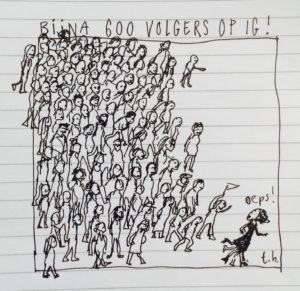 BIJNA 600 VOLGERS OP IG!
oeps!
t.h.